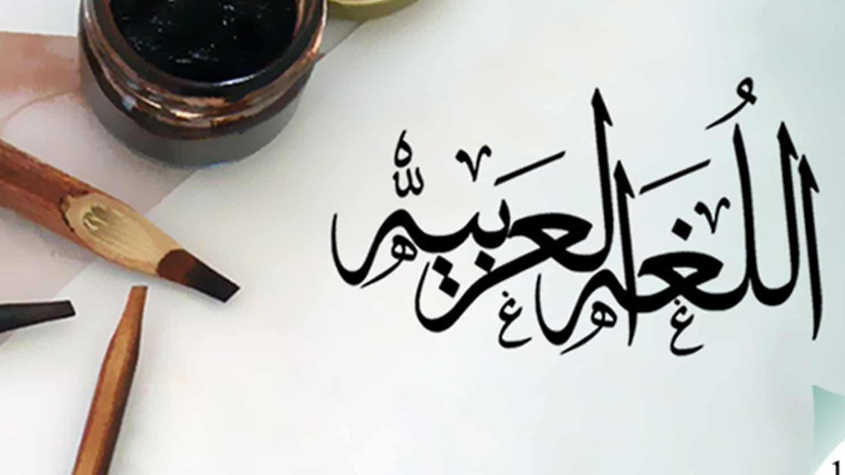 اللُغَة العَربيّة
1